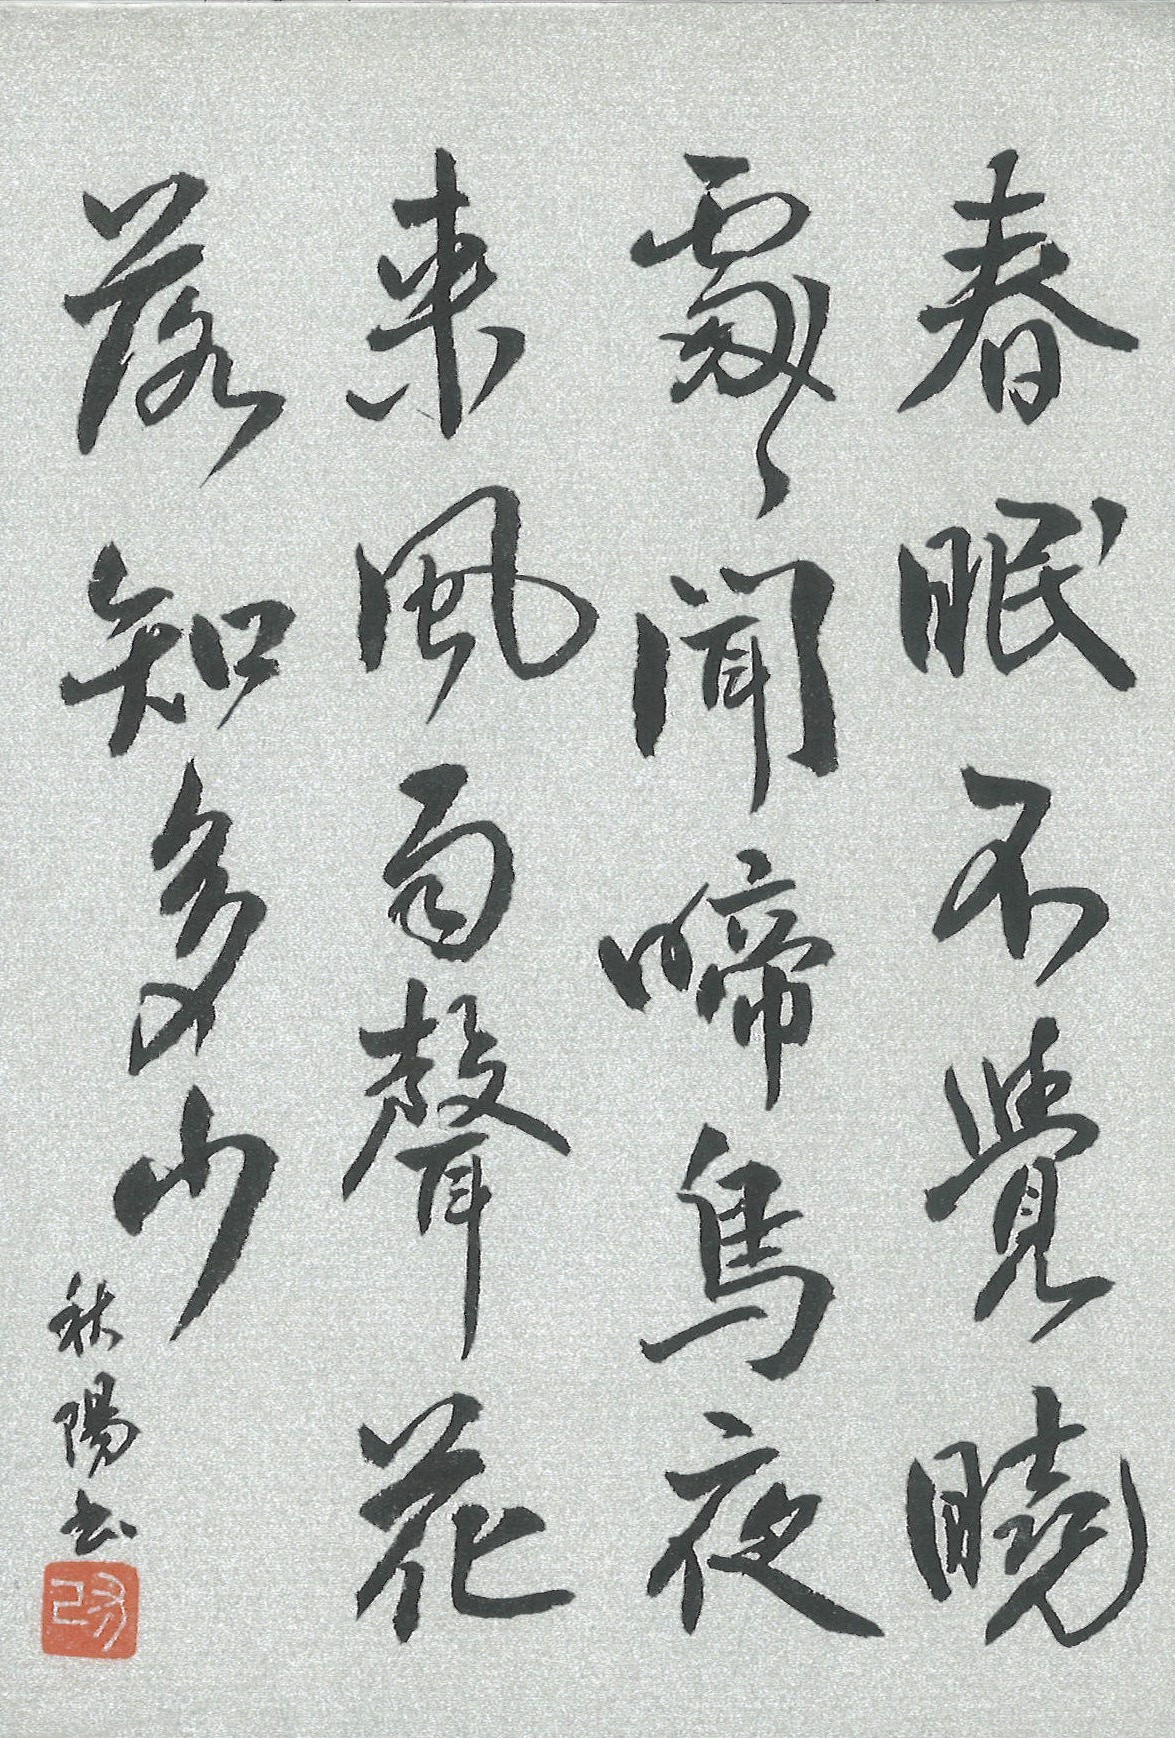 春眠不覺曉
處々聞啼鳥夜
来風雨聲花
落知多少
秋陽書